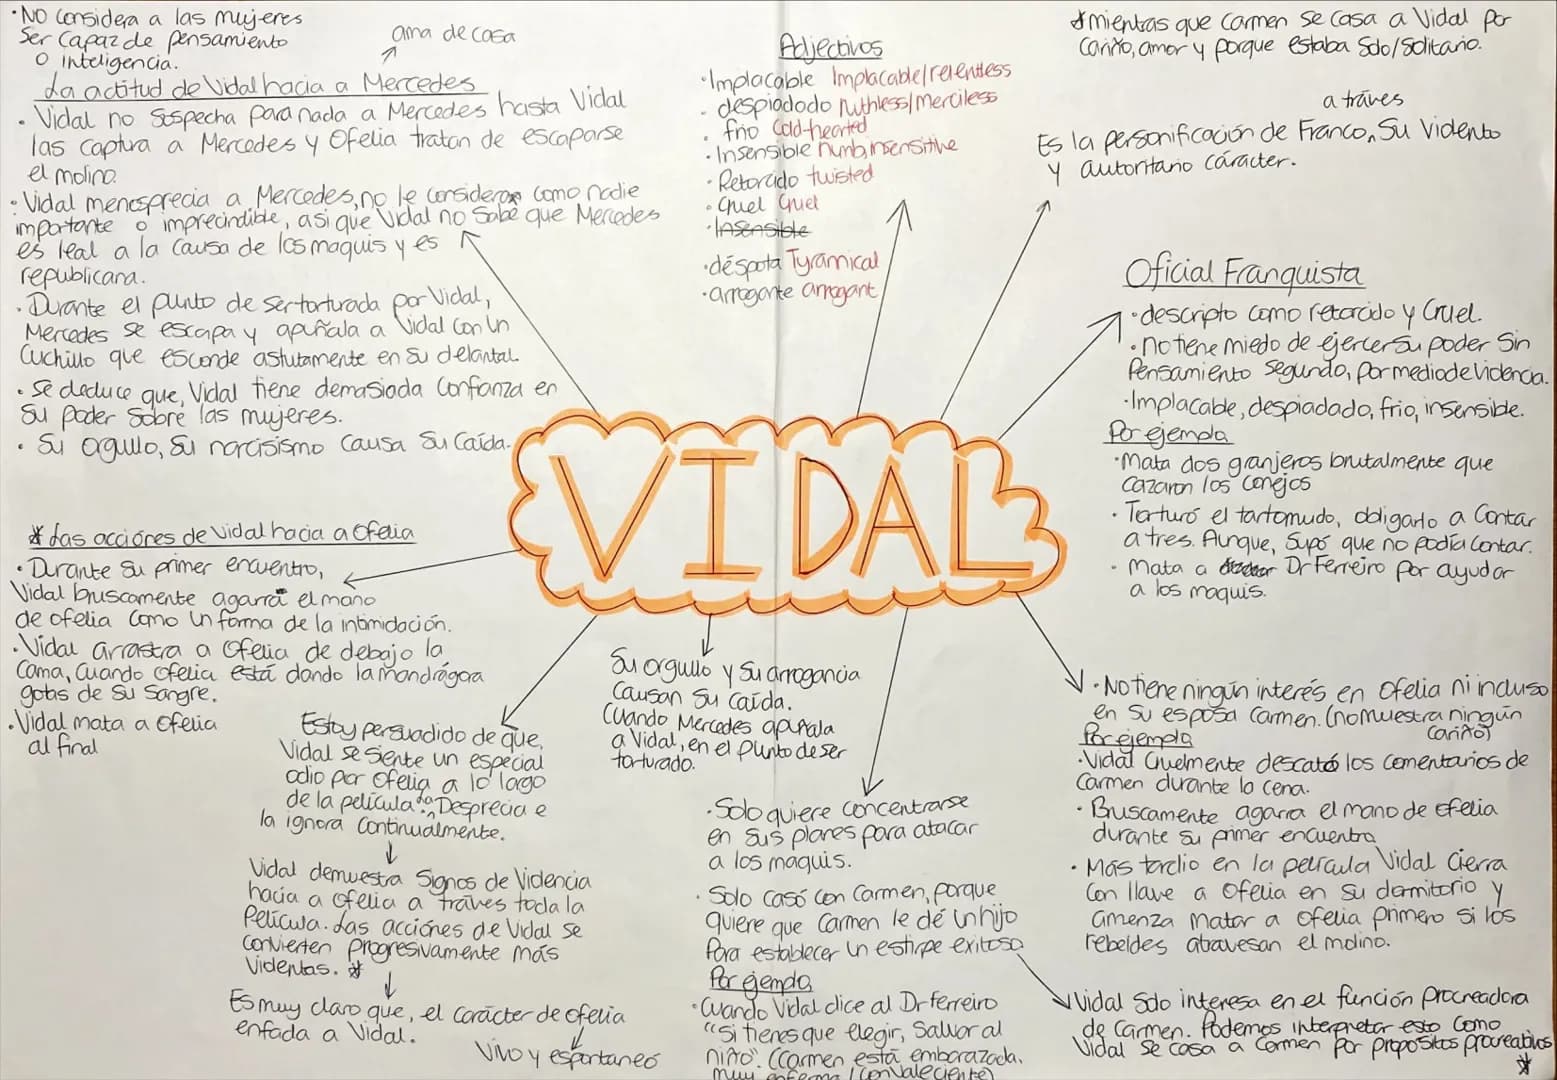 ·No considera a las mujeres
Ser Capaz de pensamiento
o inteligencia.
ama de casa
La actitud de Vidal hacia a Mercedes
· Vidal no Sospecha para nada a Mercedes hasta Vidal
las captura a Mercedes y Ofelia tratan de escaparse
el molino.
· Vidal menosprecia a Mercedes, no le considera como nadie
importante o imprecindible, asi que Vidal no Sabe que Mercedes
es leal a la causa de los maquis y es
republicana.
· Durante el punto de ser torturada por Vidal,
Mercedes se escapa y apuñala a Vidal con un
Cuchillo que esconde astutamente en su delantal.
· Se deduce que, Vidal tiene demasiada Confianza en
Su poder Sobre las mujeres.
· Su orgullo, Su narcisismo causa Su Caída.
Adjectivos
·Implacable Implacable/relentless
· despiadado ruthless/merciless
· frio Cold-hearted
·Insensible numb, insensitive
·Retorcido twisted
·Cruel Cruel
·Insensible
·déspota Tyrannical
·arrogante arrogant
*mientas que Carmen se casa a Vidal por
Cariño, amor y porque estaba Solo/Solitario.
a tráves
Es la personificación de Franco, Su Violento
y autoritario cáracter.
Oficial Franquista
·descripto como retorcido y Cruel.
·no tiene miedo de ejercer su poder Sin
Pensamiento segundo, por medio de Violencia.
·Implacable, despiadado, frio, insensible.
Por ejemplo
·Mata dos granjeros brutalmente que
cazaron los conejos
· Torturó el tartamudo, obligarlo a Contar
a tres. Aunque, Supó que no podía Contar.
· Mata a Dr Ferreiro por ayudar
a los maquis.
VIDAL
* Las acciónes de Vidal hacia a Ofelia
·Durante Su primer encuentro,
Vidal bruscamente agarra el mano
de ofelia Como un forma de la intimidación.
·Vidal arrastra a Ofelia de debajo la
Cama, Cuando ofelia está dando la mandrágora
gotas de Su Sangre.
·Vidal mata a Ofelia
al final
Estoy persuadido de que,
Vidal se Siente un especial
odio por Ofelia a lo largo
de la película. La Desprecia e
la ignora Continualmente.
Vidal demuestra Signos de Violencia
hacia a Ofelia a tráves toda la
Pelicula. Las acciónes de Vidal se
convierten progresivamente más
Violentas. *
Es muy claro que, el carácter de Ofelia
enfada a Vidal.
Vivo y espontaneó
Su orgullo y Su arrogancia
Causan Su Caída.
Cuando Mercedes apuñala
a Vidal, en el punto de ser
torturado.
·Solo quiere concentrarse
en sus planes para atacar
a los maquis.
· Solo casó con Carmen, porque
quiere que Carmen le dé un hijo
Para establecer un estirpe exitoso
Por ejemplo
·Cuando Vidal dice al Dr Ferreiro
"Si tienes que elegir, Salvar al
niño". (Carmen está embarazada,
muy enferma / Convaleciente)
·No tiene ningún interés en Ofelia ni incluso
en Su esposa Carmen. (no muestra ningún
cariño)
Por ejemplo
·Vidal Cruelmente descató los comentarios de
Carmen durante la cena.
· Bruscamente agarra el mano de Ofelia
durante su primer encuentro
· Más tardio en la película Vidal Cierra
Con llave a Ofelia en Su dormitorio y
amenza matar a Ofelia primero si los
rebeldes atravesan el molino.
Vidal Solo interesa en el función procreadora
de Carmen. Podemos interpretar esto Como
Vidal se casa a Carmen por propositos procreativos
*